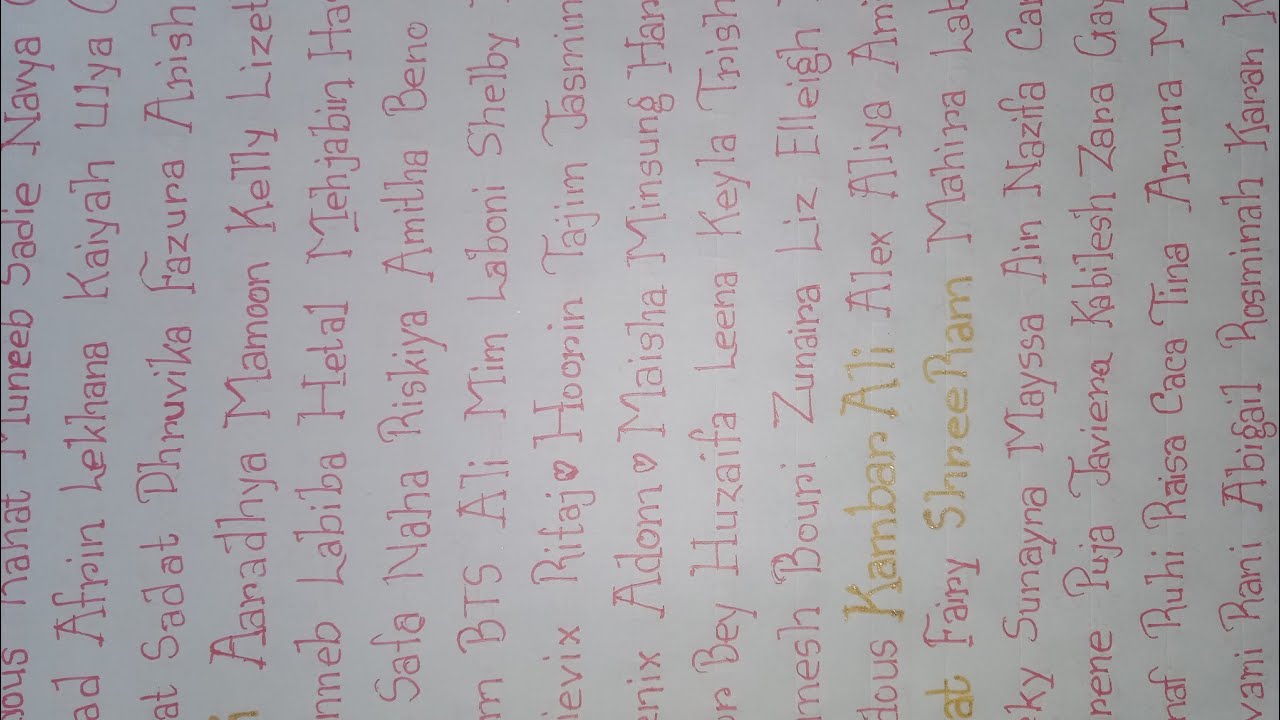 Rahat Muneeb Sadie Navya
ad Afrin Lekhana Kaiyah Ulya
at Sadat Dhruvika Fazura Arish
i Aaradhya Mamoon Kelly Lizet
nneb Labiba Hetal Mehjabin Ha
Safa Naha Riskiya Amitha Beno
m BTS Ali Mim Laboni Shelby
ievix Ritaj♥ Hoorin Tajim Jasmin
enix Adom♥ Maisha Minsung Har
or Bey Huzaifa Leena Keyla Trish
mesh Bouri Zunaira Liz Elleigh
dous Kambar Ali Alex Aliya Ami
at Fairy ShreeRam Mahira Lab
ky Sunayna Mayssa Ain Nazifa Car
rene Puja Javiena Kabilesh Zara Gay
naf Ruhi Raisa Caca Tina Aruna M
vani Rani Abigail Rosminah Karan K